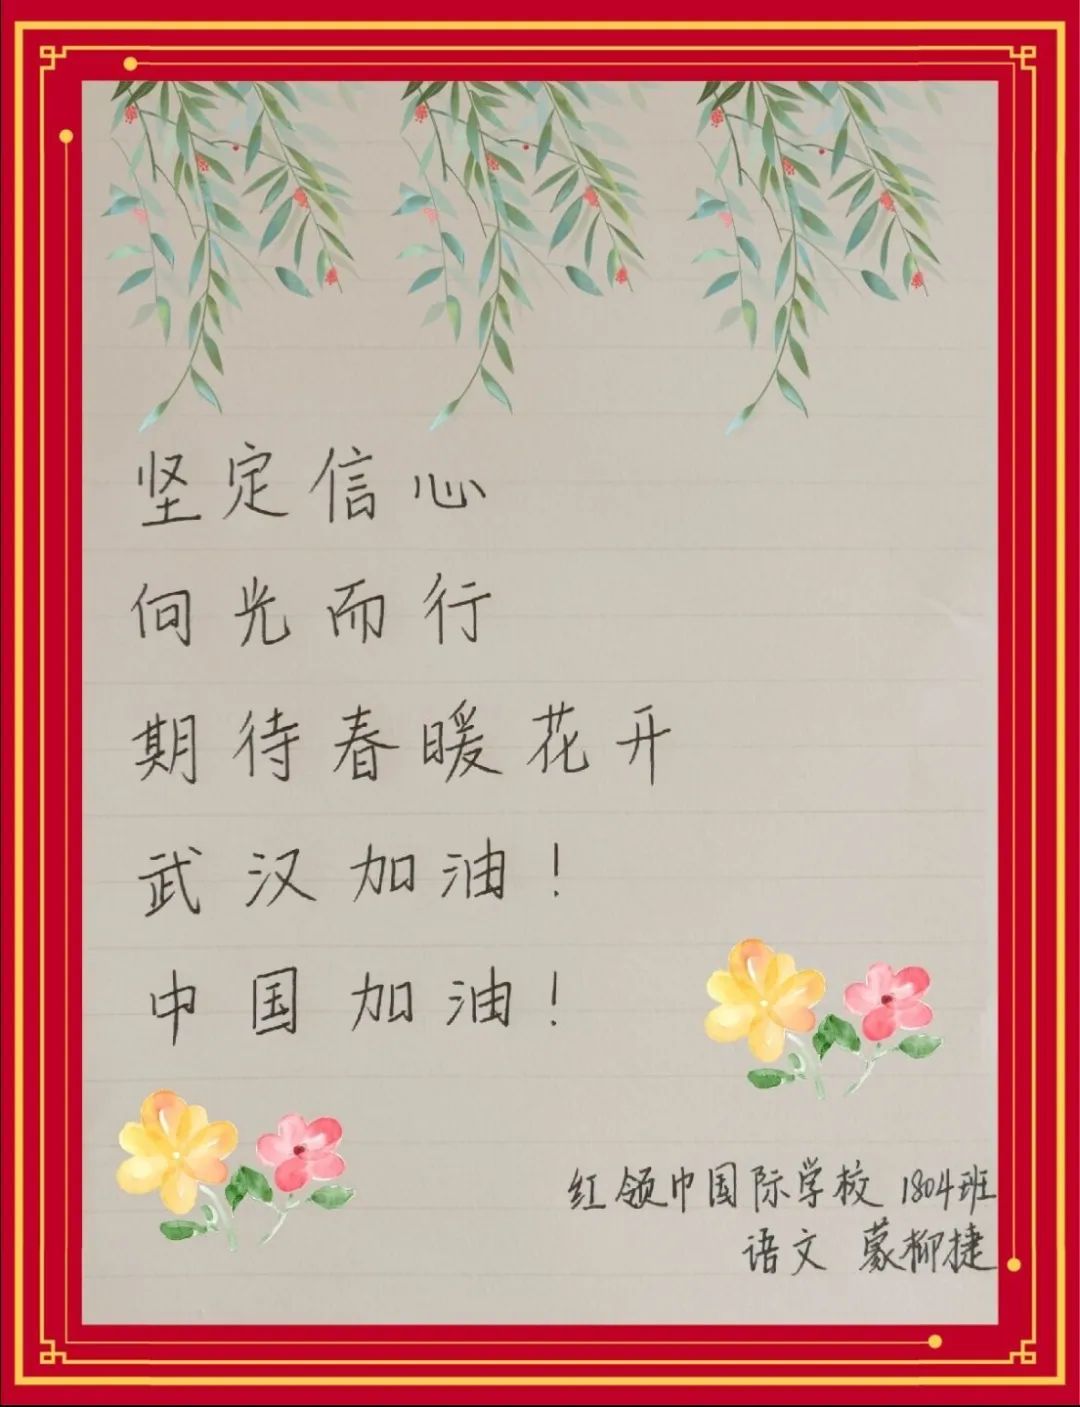 坚定信心
向光而行
期待春暖花开
武汉加油！
中国加油！
红领巾国际学校 1804班
语文 蒙柳捷